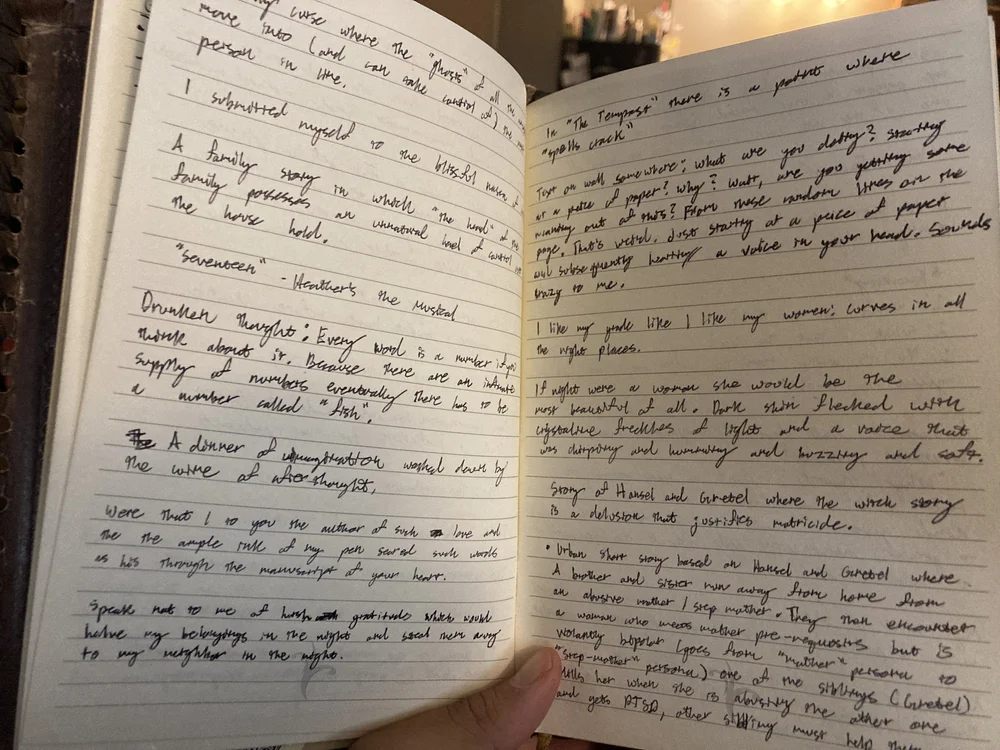 curse where the "ghosts" of all the
move into (and can take control of) the
person in line.
I submitted myself to the blissful
A family story in which "the hand" of the
family possesses an unnatural hand of control
the house hold.
"Seventeen" - Heather's the musical
Drunken thought: Every word is a number if you
think about it. Because there are an infinite
supply of numbers eventually there has to be
a number called "fish".
A dinner of imagination washed down by
the wine of after thought.
Were that I to you the author of such love and
the the ample ink of my pen seared such words
as his through the manuscript of your heart.
Speak not to me of harsh gratitude which would
halve my belongings in the night and steal them away
to my neighbor in the night.
In "The Tempest" there is a point where
"spells crack"
Just on wall somewhere: What are you doing? Staring
at a piece of paper? Why? Wait, are you getting some
meaning out of this? From these random lines on the
page. That's weird. Just staring at a piece of paper
and subsequently hearing a voice in your head. Sounds
crazy to me.
I like my grade like I like my women: curves in all
the right places.
If night were a woman she would be the
most beautiful of all. Dark skin flecked with
crystaline freckles of light and a voice that
was chirping and humming and buzzing and soft.
Story of Hansel and Gretel where the witch story
is a delusion that justifies matricide.
• Urban short story based on Hansel and Gretel where
A brother and sister run away from home from
an abusive mother / step mother. They then encounter
a woman who meets mother pre-requosits but is
violently bipolar (goes from "mother" persona to
"step-mother" persona) one of the siblings (Gretel)
kills her when she is abusing the other one
and gets PTSD, other sibling must help them